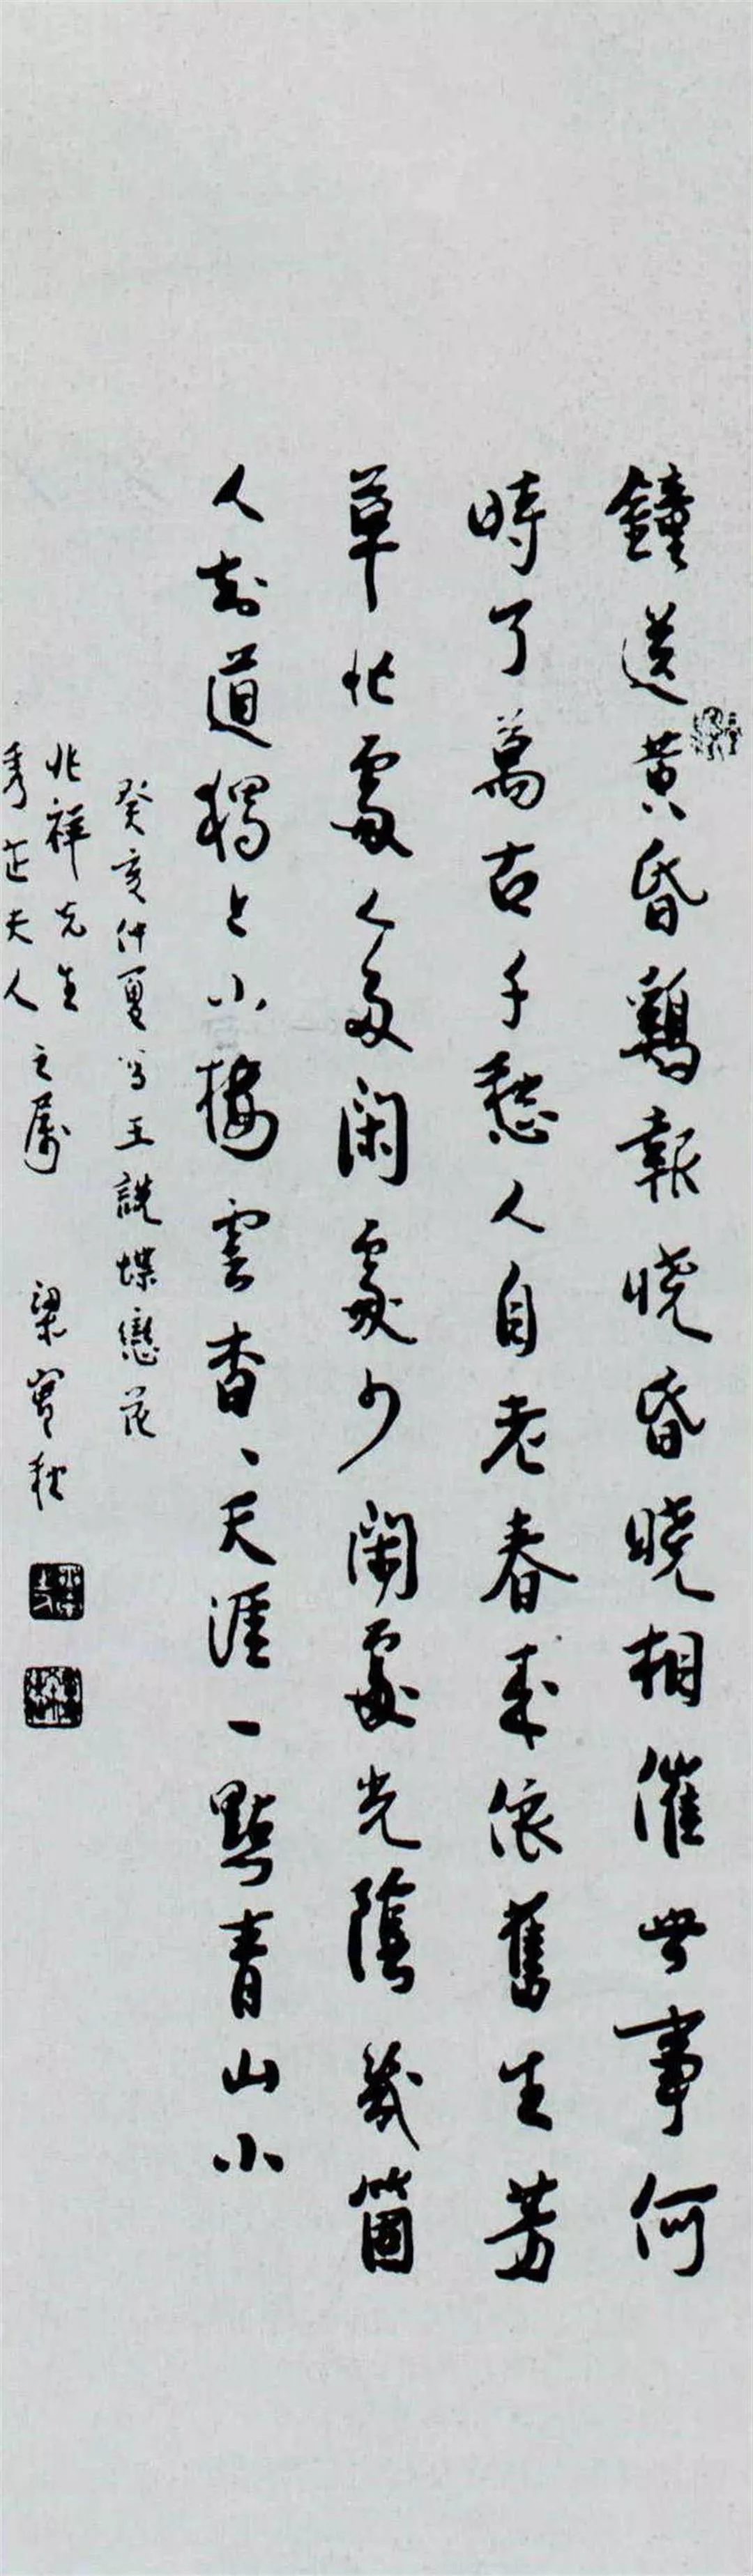 鐘送黃昏鷄報曉昏曉相催世事何
時了萬古千愁人自老春來依舊生芳
草忙處人多閑處少閑處光陰幾箇
人知道獨上小樓雲杳、天涯一點青山小
癸亥仲夏寫王詵蝶戀花
兆祥先生
秀芷夫人
之屬 梁實秋